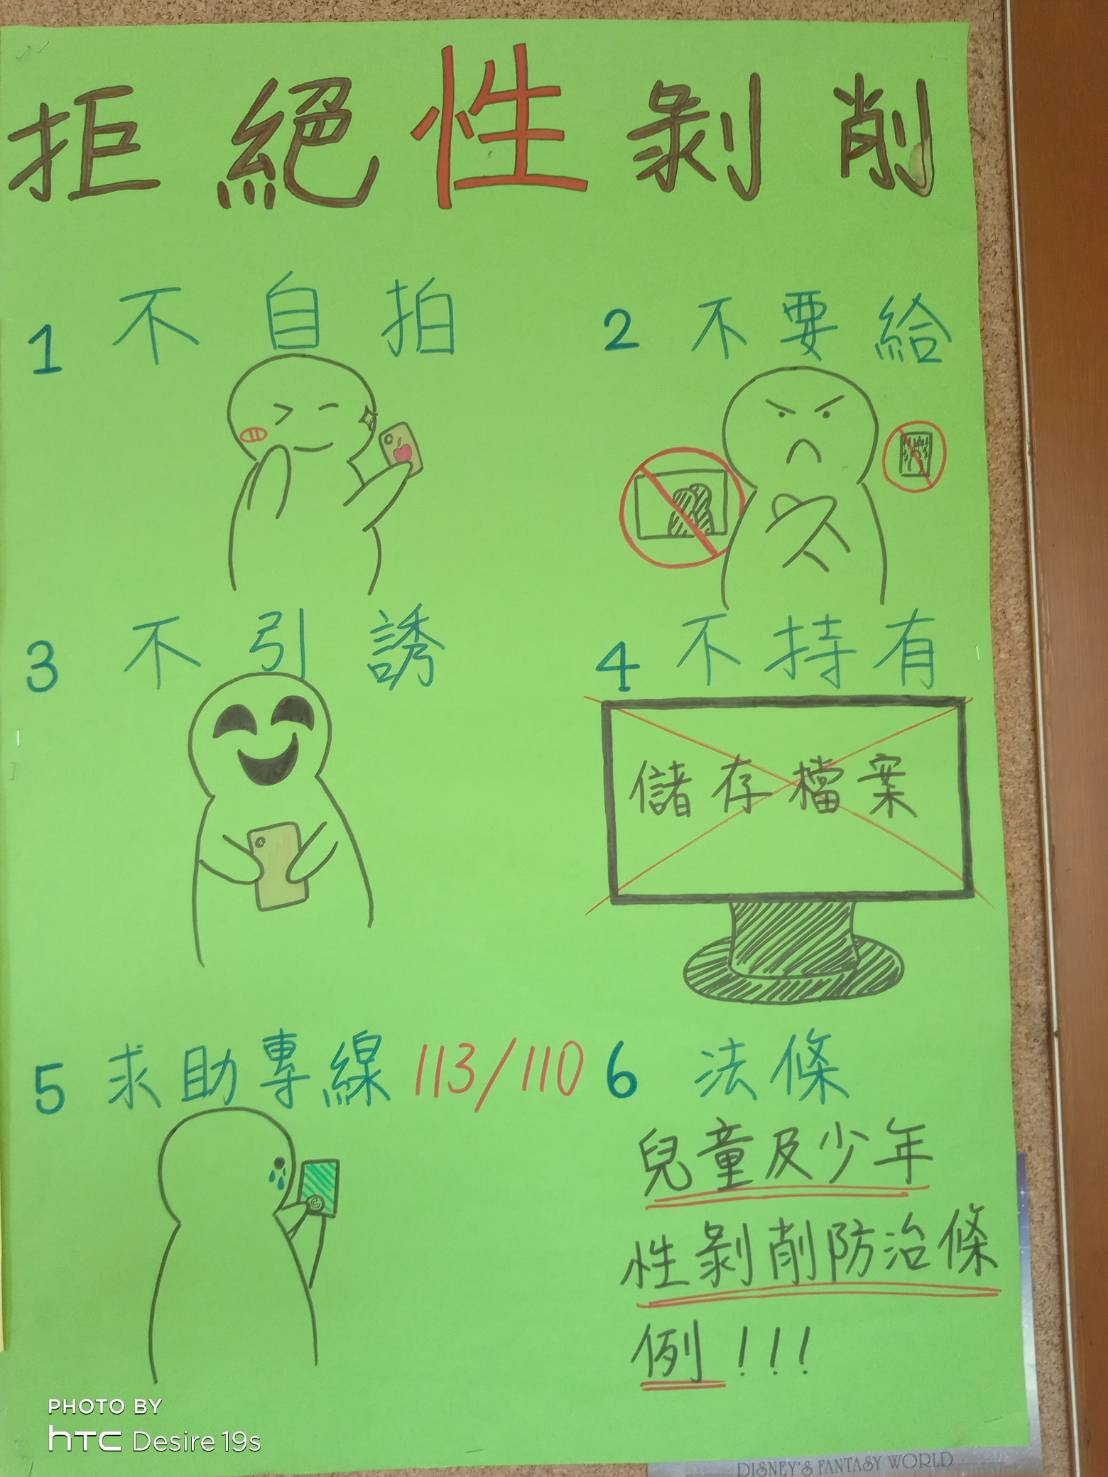 拒絕性剝削
1 不自拍
2 不要給
3 不引誘
4 不持有
儲存檔案
5 求助專線 113/110
6 法條
兒童及少年
性剝削防治條
例!!!
PHOTO BY
hTC Desire 19s
DISNEY'S FANTASY WORLD